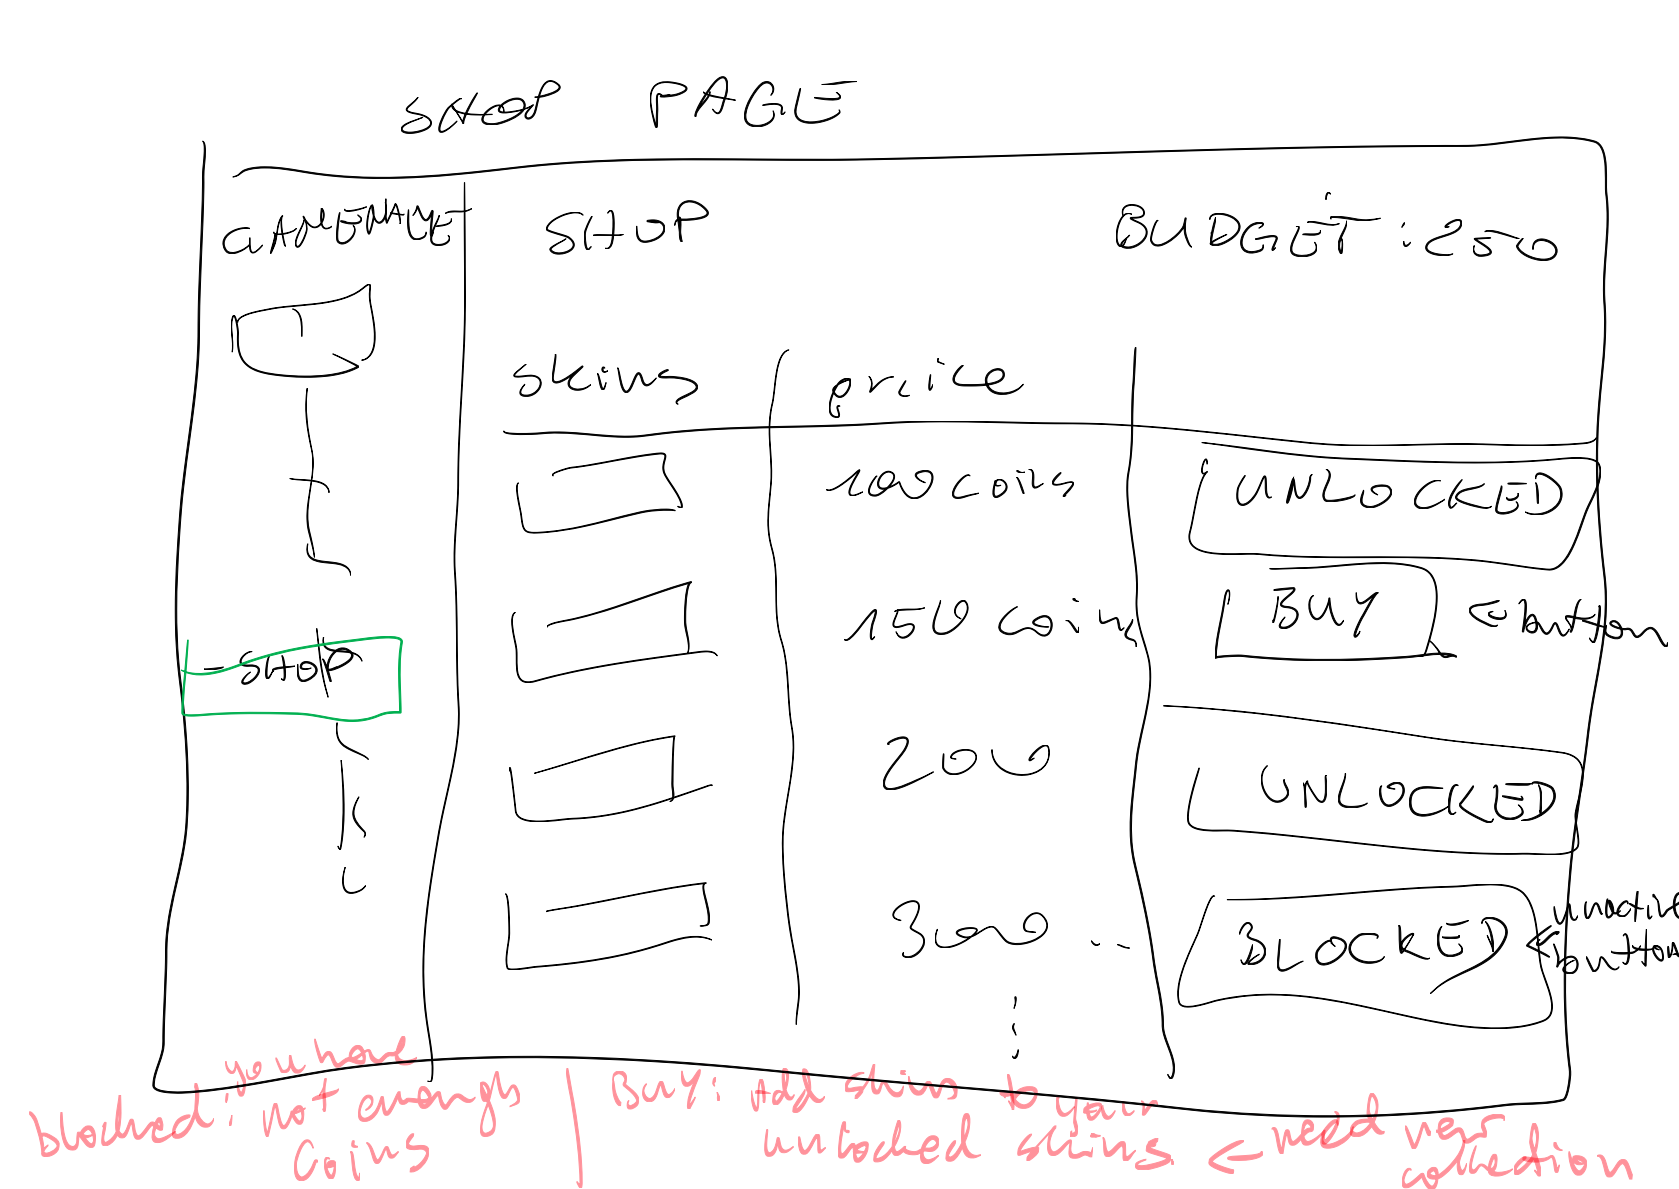 SHOP PAGE
GAMENAME
SHOP
BUDGET : 250
skins
price
100 coins
UNLOCKED
150 coins
BUY
← button
- SHOP
200
UNLOCKED
300 ...
BLOCKED
← unactive
button
blocked: you have
not enough
coins
BUY: Add skins to your
unlocked skins ← need new
collection